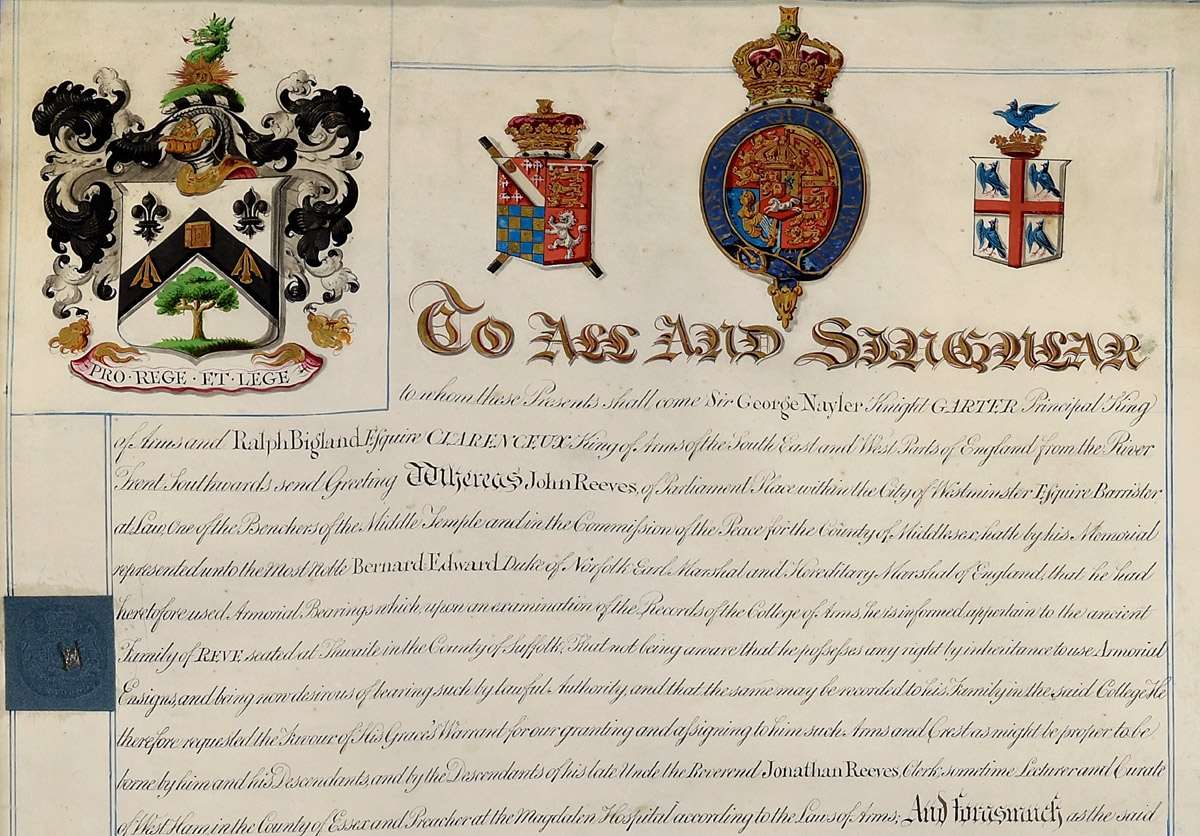 PRO · REGE · ET · LEGE
HONI SOIT QUI MAL Y PE
To All And Singular
to whom these Presents shall come Sir George Nayler Knight GARTER Principal King
of Arms and Ralph Bigland Esquire CLARENCEUX King of Arms of the South East and West Parts of England from the River
Trent Southwards send Greeting Whereas John Reeves, of Parliament Place within the City of Westminster Esquire Barrister
at Law, One of the Benchers of the Middle Temple and in the Commission of the Peace for the County of Middlesex, hath by his Memorial
represented unto the Most Noble Bernard Edward Duke of Norfolk Earl Marshal and Hereditary Marshal of England, that he had
heretofore used Armorial Bearings which, upon an examination of the Records of the College of Arms, he is informed, appertain to the ancient
Family of REVE seated at Thwaite in the County of Suffolk, That not being aware that he possesses any right by inheritance to use Armorial
Ensigns, and being now desirous of bearing such by lawful Authority, and that the same may be recorded to his Family in the said College He
therefore requested the Favour of His Grace's Warrant for our granting and assigning to him such Arms and Crest as might be proper to be
borne by him and his Descendants, and by the Descendants of his late Uncle the Reverend Jonathan Reeves, Clerk, sometime Lecturer and Curate
of West Ham in the County of Essex and Preacher at the Magdalen Hospital according to the Laws of Arms; And forasmuch as the said